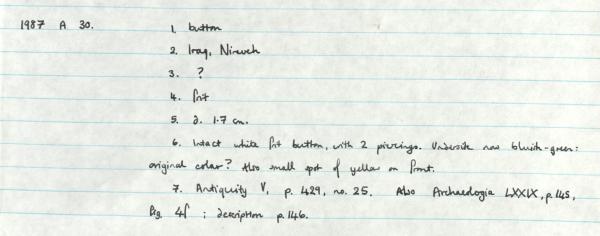 1987 A 30. 1. button
2. Iraq, Nineveh
3. ?
4. frit
5. d. 1.7 cm.
6. Intact white frit button, with 2 piercings. Underside now bluish-green:
original colour? Also small spot of yellow on front.
7. Antiquity V, p.429, no. 25. Also Archaeologia LXXIX, p.145,
fig. 4f ; description p.146.